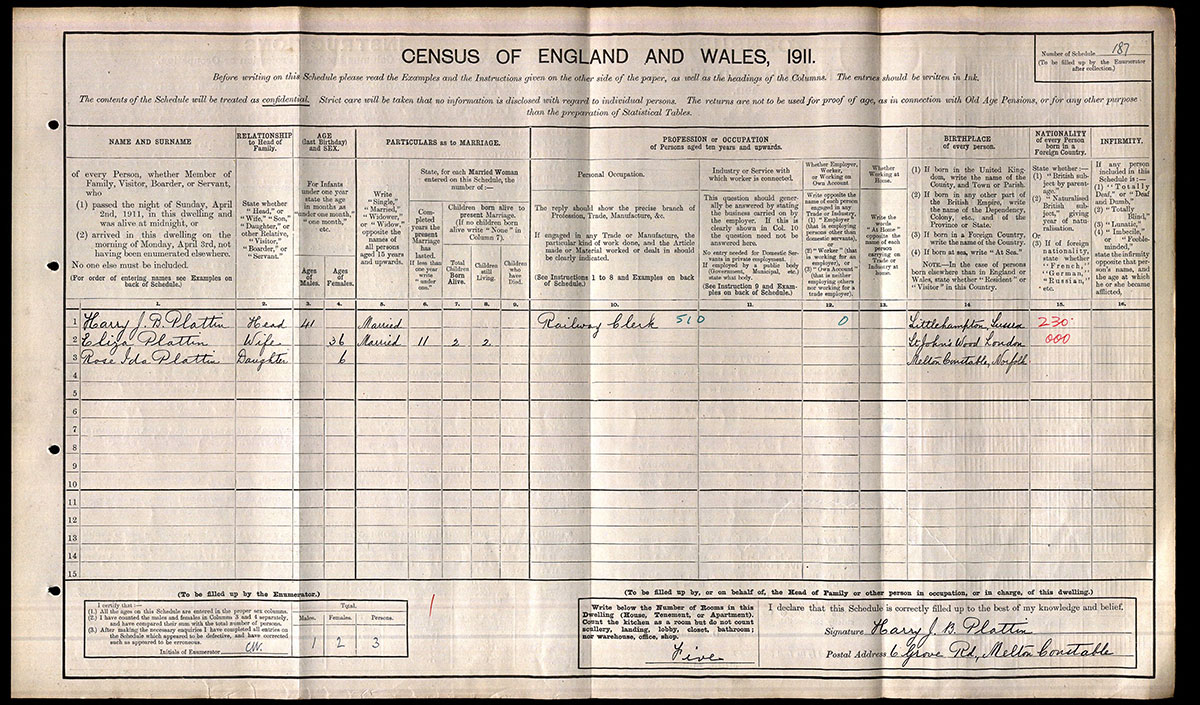 CENSUS OF ENGLAND AND WALES, 1911.
Number of Schedule 187
(To be filled up by the Enumerator
after collection.)
Before writing on this Schedule please read the Examples and the Instructions given on the other side of the paper, as well as the headings of the Columns. The entries should be written in Ink.
The contents of the Schedule will be treated as confidential. Strict care will be taken that no information is disclosed with regard to individual persons. The returns are not to be used for proof of age, as in connection with Old Age Pensions, or for any other purpose
than the preparation of Statistical Tables.
NAME AND SURNAME
of every Person, whether Member of
Family, Visitor, Boarder, or Servant,
who
(1) passed the night of Sunday, April
2nd, 1911, in this dwelling and
was alive at midnight, or
(2) arrived in this dwelling on the
morning of Monday, April 3rd, not
having been enumerated elsewhere.
No one else must be included.
(For order of entering names see Examples on
back of Schedule.)
RELATIONSHIP
to Head of
Family.
State whether
"Head," or
"Wife," "Son,"
"Daughter," or
other Relative,
"Visitor,"
"Boarder," or
"Servant."
AGE
(last Birthday)
and SEX.
For Infants
under one year
state the age
in months as
"under one month,"
"one month,"
etc.
Ages
of
Males.
Ages
of
Females.
PARTICULARS as to MARRIAGE.
Write
"Single,"
"Married,"
"Widower,"
or "Widow,"
opposite the
names of
all persons
aged 15 years
and upwards.
State, for each Married Woman
entered on this Schedule, the
number of:—
Com-
pleted
years the
present
Marriage
has
lasted.
If less than
one year
write
"under
one."
Children born alive to
present Marriage.
(If no children born
alive write "None" in
Column 7).
Total
Children
Born
Alive.
Children
still
Living.
Children
who
have
Died.
PROFESSION or OCCUPATION
of Persons aged ten years and upwards.
Personal Occupation.
The reply should show the precise branch of
Profession, Trade, Manufacture, &c.
If engaged in any Trade or Manufacture, the
particular kind of work done, and the Article
made or Material worked or dealt in should
be clearly indicated.
(See Instructions 1 to 8 and Examples on back
of Schedule.)
Industry or Service
with which worker is connected.
This question should gener-
ally be answered by stating
the business carried on by
the employer. If this is
clearly shown in Col. 10
the question need not be
answered here.
No entry needed for Domestic Ser-
vants in private employment.
If employed by a public body
(Government, Municipal, etc.)
state what body.
(See Instruction 9 and Exam-
ples on back of Schedule.)
Whether Employer,
Worker,
or Working on
Own Account
Write opposite the
name of each person
engaged in any
Trade or Industry,
(1) "Employer"
(that is employing
persons other than
domestic servants),
or
(2) "Worker" (that
is working for an
employer), or
(3) "Own Account"
(that is neither
employing others
nor working for a
trade employer).
Whether
Working at
Home.
Write the
words
"At Home"
opposite the
name of each
person
carrying on
Trade or
Industry at
home.
BIRTHPLACE
of every person.
(1) If born in the United King-
dom, write the name of the
County, and Town or Parish.
(2) If born in any other part of
the British Empire, write
the name of the Dependency,
Colony, etc., and of the
Province or State.
(3) If born in a Foreign Country,
write the name of the Country.
(4) If born at sea, write "At Sea."
NOTE.—In the case of persons
born elsewhere than in England or
Wales, state whether "Resident" or
"Visitor" in this Country.
NATIONALITY
of every Person
born in a
Foreign Country.
State whether:—
(1) "British sub-
ject by parent-
age."
(2) "Naturalised
British sub-
ject," giving
year of natu-
ralisation.
Or
(3) If of foreign
nationality,
state whether
"French,"
"German,"
"Russian,"
etc.
INFIRMITY.
If any person
included in this
Schedule is:—
(1) "Totally
Deaf," or "Deaf
and Dumb,"
(2) "Totally
Blind,"
(3) "Lunatic,"
(4) "Imbecile,"
or "Feeble-
minded,"
state the infirmity
opposite that per-
son's name, and
the age at which
he or she became
afflicted.
1. 2. 3. 4. 5. 6. 7. 8. 9. 10. 11. 12. 13. 14 15. 16.
1 Harry J. B. Plattin Head 41 Married Railway Clerk 510 0 Littlehampton, Sussex 230
2 Eliza Plattin Wife 36 Married 11 2 2 St John's Wood London 000
3 Rose Ida Plattin Daughter 6 Melton Constable, Norfolk
4
5
6
7
8
9
10
11
12
13
14
15
(To be filled up by the Enumerator.)
I certify that:—
(1.) All the ages on this Schedule are entered in the proper sex columns.
(2.) I have counted the males and females in Columns 3 and 4 separately,
and have compared their sum with the total number of persons.
(3.) After making the necessary enquiries I have completed all entries on
the Schedule which appeared to be defective, and have corrected
such as appeared to be erroneous.
Initials of Enumerator
Total.
Males. Females. Persons.
1 2 3
(To be filled up by, or on behalf of, the Head of Family or other person in occupation, or in charge, of this dwelling.)
Write below the Number of Rooms in this
Dwelling (House, Tenement, or Apartment).
Count the kitchen as a room but do not count
scullery, landing, lobby, closet, bathroom;
nor warehouse, office, shop.
Five
I declare that this Schedule is correctly filled up to the best of my knowledge and belief.
Signature Harry J. B. Plattin
Postal Address 6 Grove Rd, Melton Constable